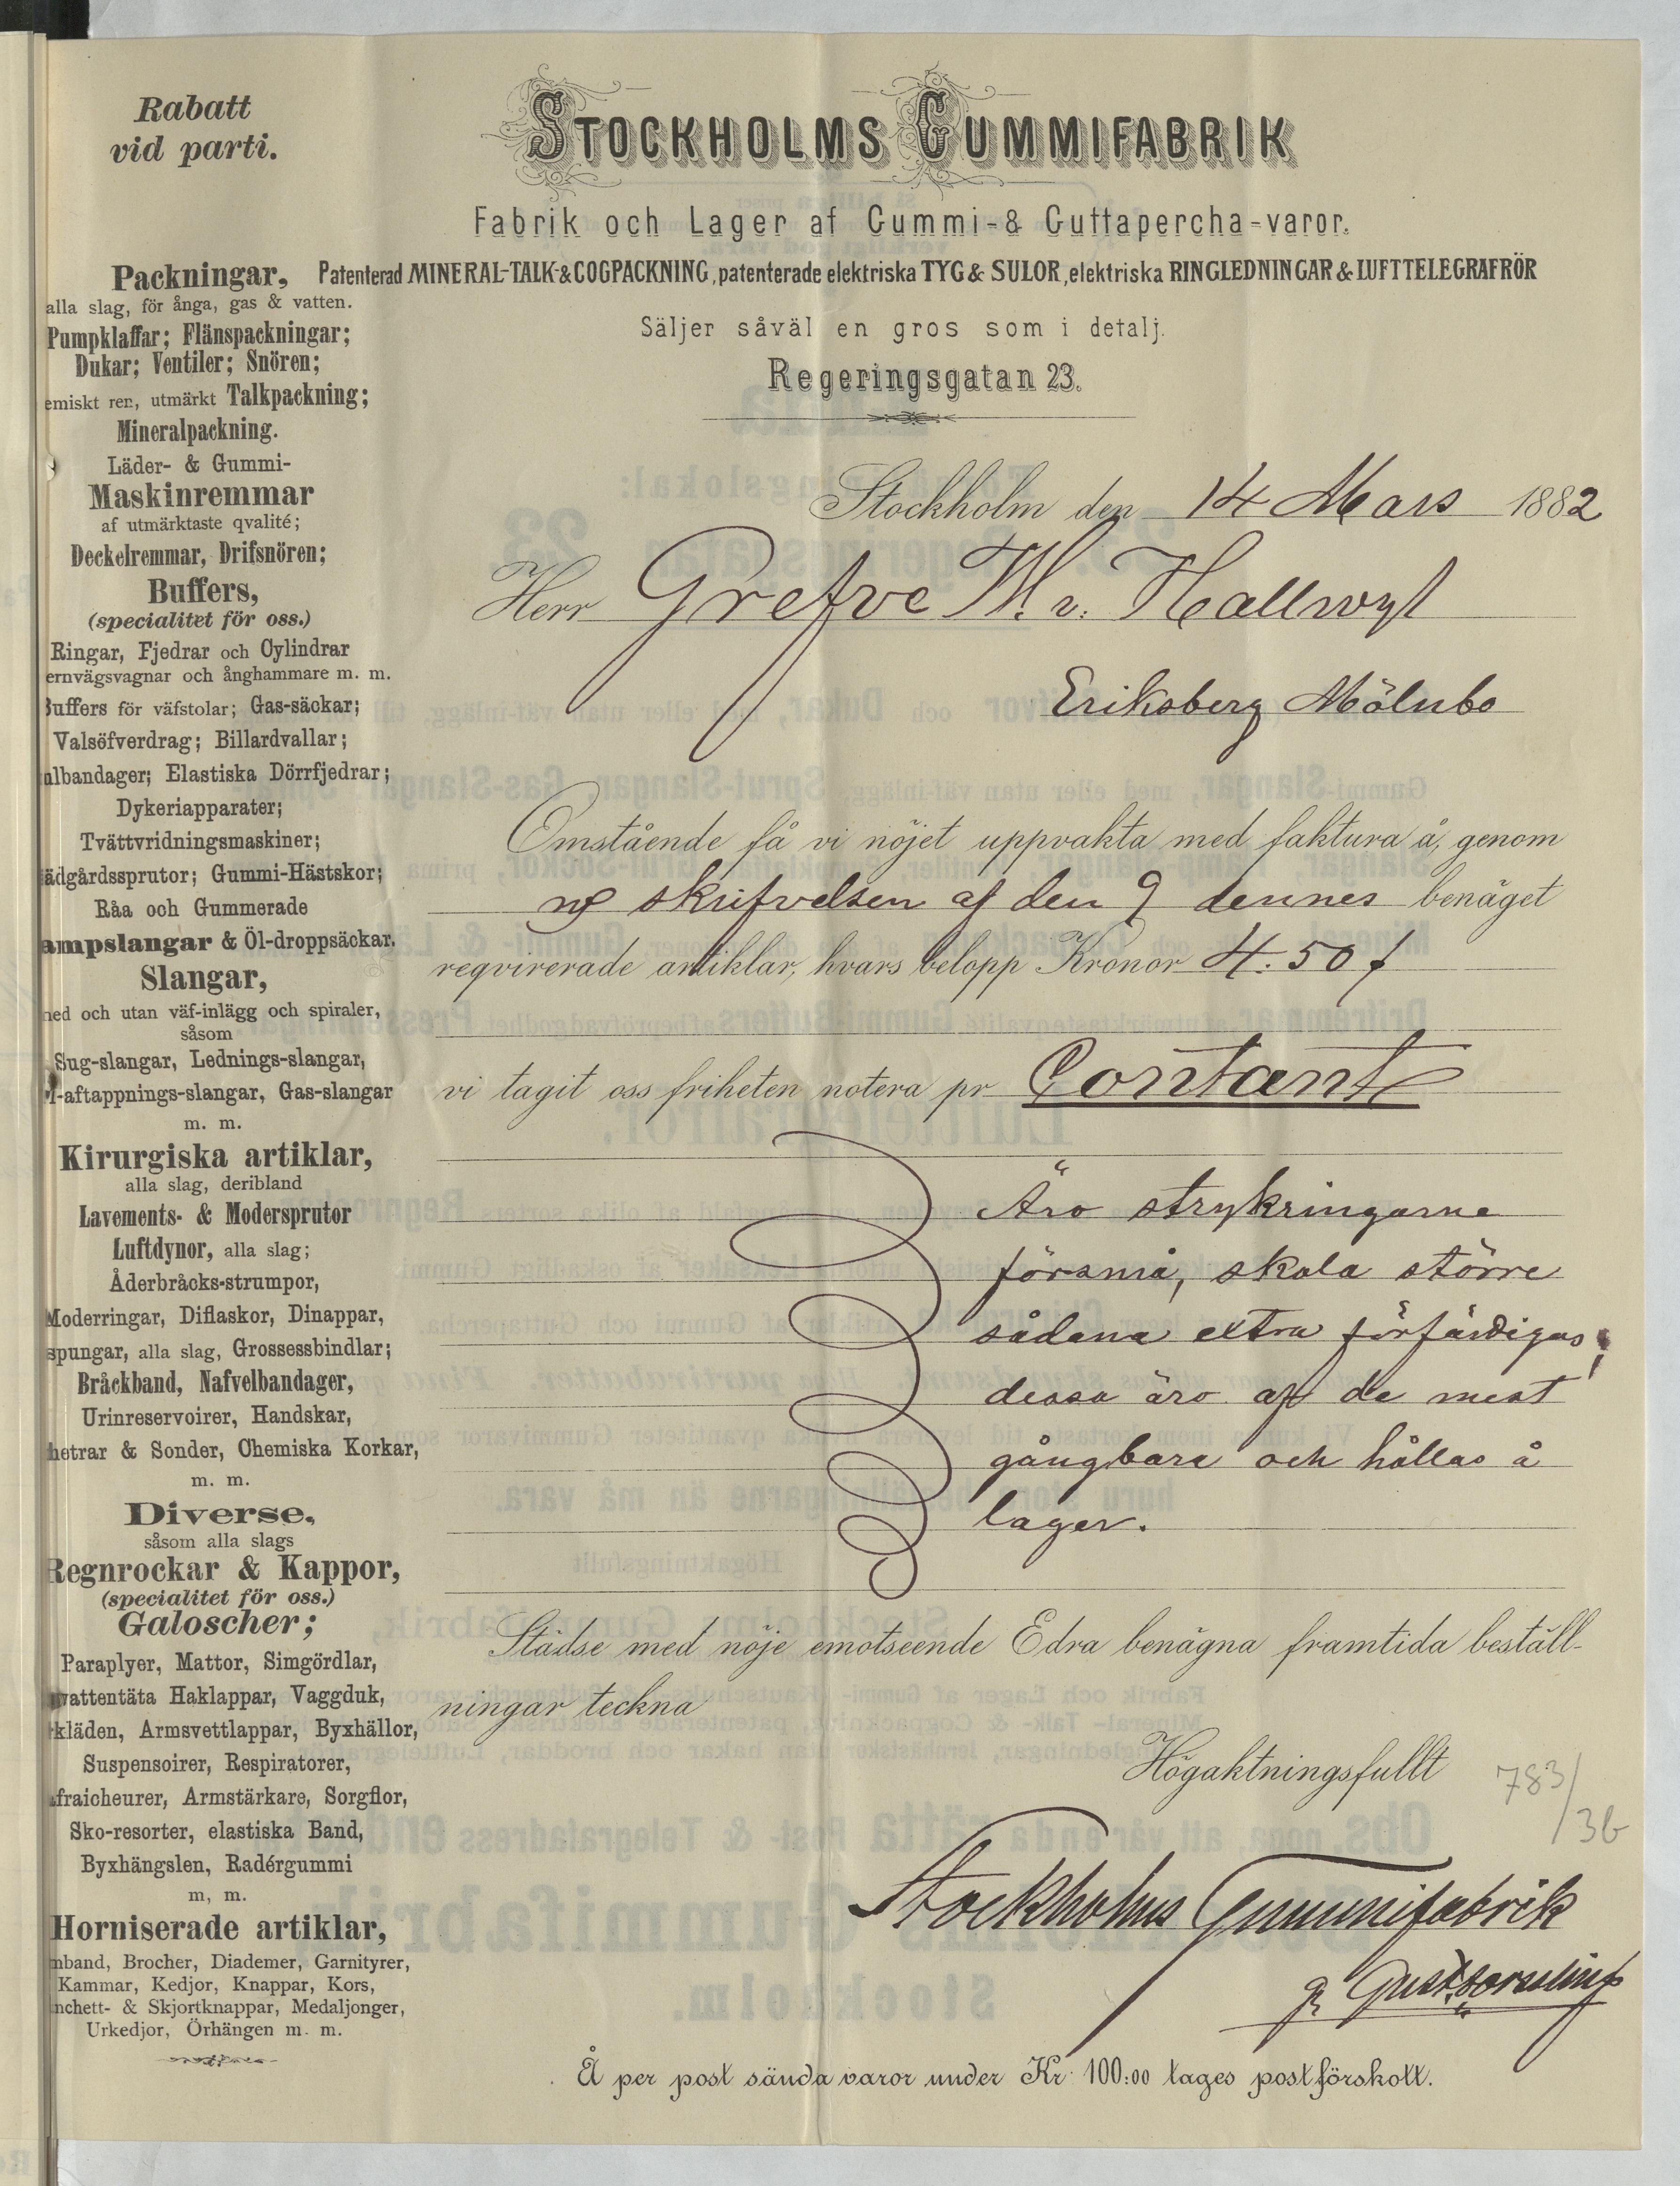 Rabatt
vid parti.
STOCKHOLMS GUMMIFABRIK
Fabrik och Lager af Gummi- & Guttapercha-varor.
Patenterad MINERAL-TALK-& COGPACKNING, patenterade elektriska TYG & SULOR, elektriska RINGLEDNINGAR & LUFTTELEGRAFRÖR
Säljer såväl en gros som i detalj.
Regeringsgatan 23.
Packningar,
alla slag, för ånga, gas & vatten.
Pumpklaffar; Flänspackningar;
Dukar; Ventiler; Snören;
emiskt ren, utmärkt Talkpackning;
Mineralpackning.
Läder- & Gummi-
Maskinremmar
af utmärktaste qvalité;
Deckelremmar, Drifsnören;
Buffers,
(specialitet för oss.)
Ringar, Fjedrar och Cylindrar
ernvägsvagnar och ånghammare m. m.
Buffers för väfstolar; Gas-säckar;
Valsöfverdrag; Billardvallar;
albandager; Elastiska Dörrfjedrar;
Dykeriapparater;
Tvättvridningsmaskiner;
ädgårdssprutor; Gummi-Hästskor;
Råa och Gummerade
ampslangar & Öl-droppsäckar.
Slangar,
med och utan väf-inlägg och spiraler,
såsom
Sug-slangar, Lednings-slangar,
l-aftappnings-slangar, Gas-slangar
m. m.
Kirurgiska artiklar,
alla slag, deribland
Lavements- & Modersprutor
Luftdynor, alla slag;
Åderbråcks-strumpor,
Moderringar, Diflaskor, Dinappar,
spungar, alla slag, Grossessbindlar;
Bråckband, Nafvelbandager,
Urinreservoirer, Handskar,
hetrar & Sonder, Chemiska Korkar,
m. m.
Diverse,
såsom alla slags
Regnrockar & Kappor,
(specialitet för oss.)
Galoscher;
Paraplyer, Mattor, Simgördlar,
vattentäta Haklappar, Vaggduk,
kläden, Armsvettlappar, Byxhällor,
Suspensoirer, Respiratorer,
fraicheurer, Armstärkare, Sorgflor,
Sko-resorter, elastiska Band,
Byxhängslen, Radérgummi
m, m.
Horniserade artiklar,
mband, Brocher, Diademer, Garnityrer,
Kammar, Kedjor, Knappar, Kors,
nchett- & Skjortknappar, Medaljonger,
Urkedjor, Örhängen m. m.
Stockholm den 14 Mars 1882
Herr Grefve W. v. Hallwyl
Eriksberg Mölnbo
Omstående få vi nöjet uppvakta med faktura å, genom
skrifvelsen af den 9 dennes benäget
reqvirerade artiklar, hvars belopp Kronor 4.50
vi tagit oss friheten notera pr Contant
Äro strykringarne
försmå, skola större
sådana extra förfärdigas;
dessa äro af de mest
gångbara och hållas å
lager.
Städse med nöje emotseende Edra benägna framtida beställ-
ningar teckna
Högaktningsfullt
783/3b
Stockholms Gummifabrik
Å per post sända varor under Kr 100:00 tages postförskott.